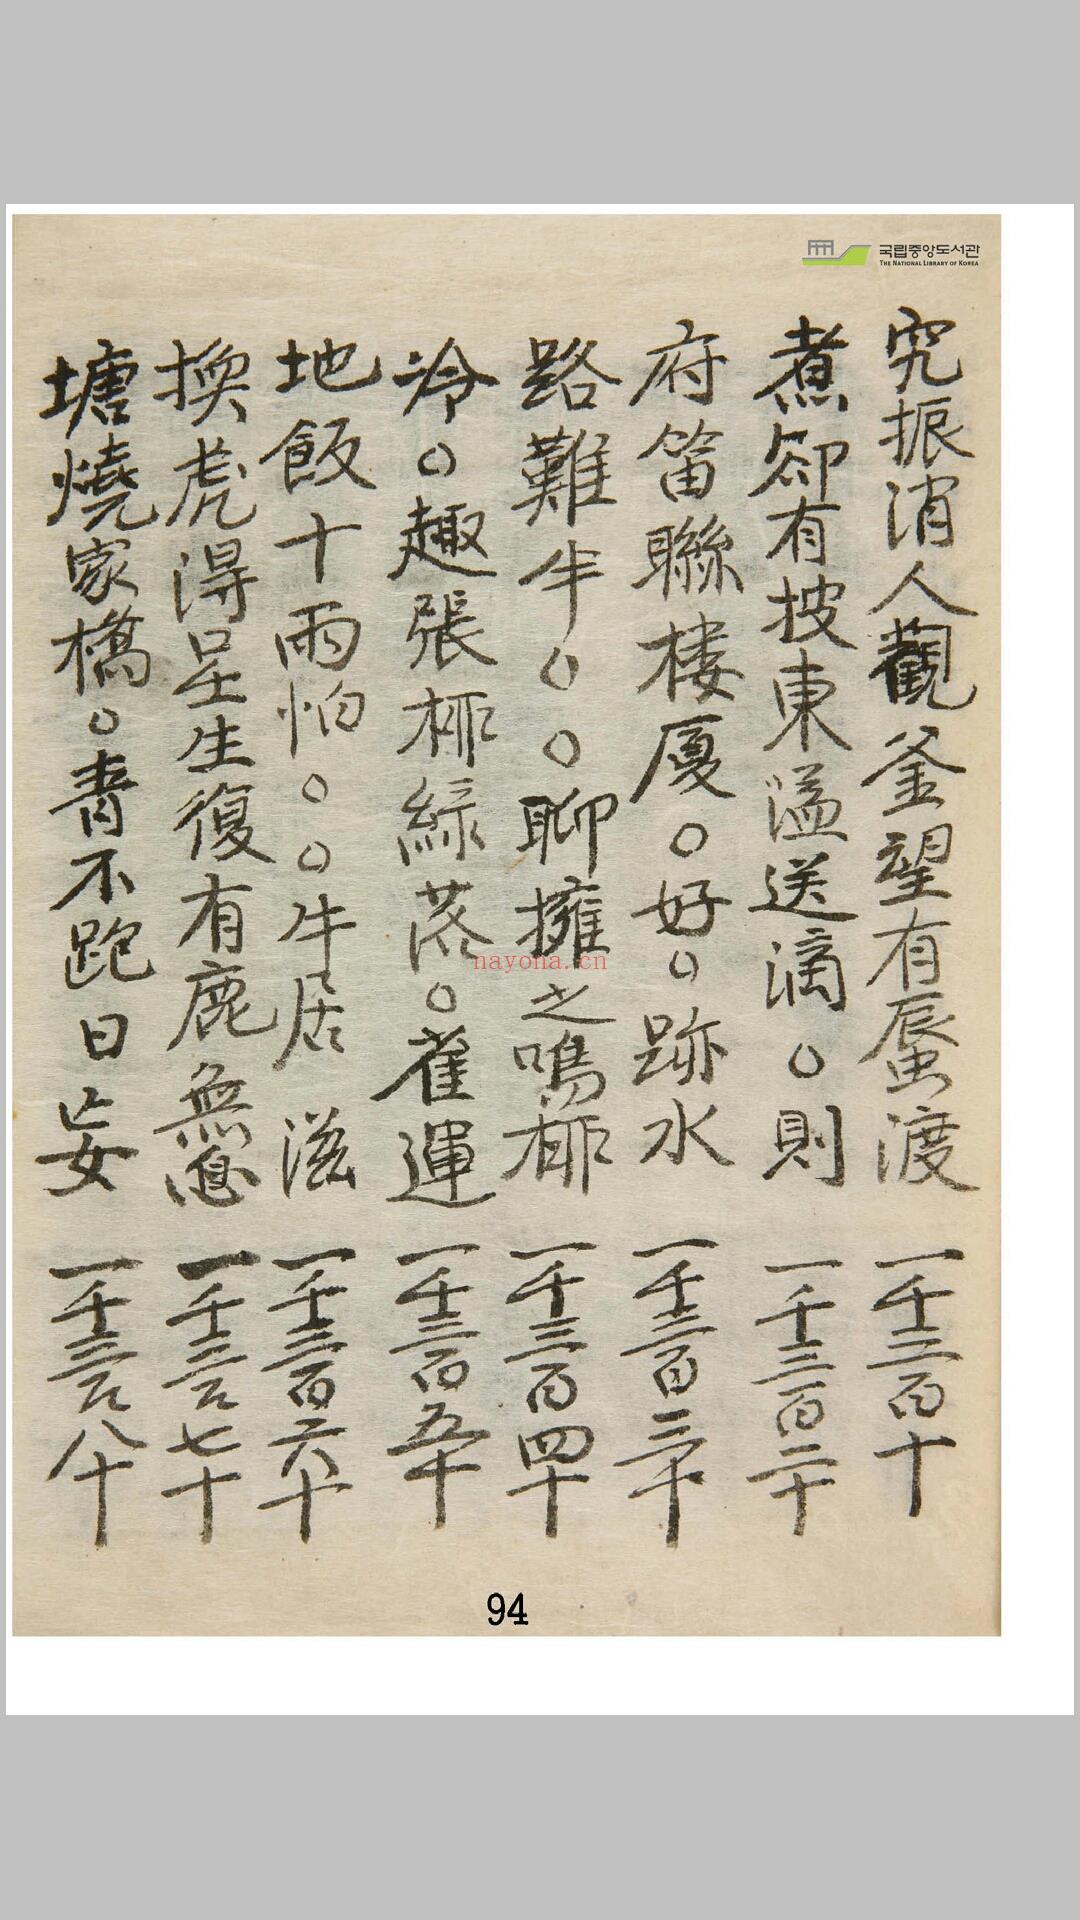 국립중앙도서관
THE NATIONAL LIBRARY OF KOREA
究振消人觀釜望有蜃渡 一千三百十
煮却有披東溢送滴○則 一千三百二十
府笛聯樓厦○好○跡水 一千三百三十
路難牛○○聊擁之鳴 一千三百四十
冷○趣張極綠落○雀運 一千三百五十
地飯十雨怕○○牛居滋 一千三百六十
換虎得星生復有鹿無息 一千三百七十
塘燒家橋○青不跑日妄 一千三百八十
nayona.cn
94